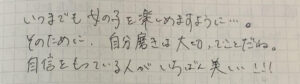 いつまでも女の子を楽しめますように…。
そのために、自分磨きは大切、てことだね。
自信をもっている人がいちばん美しい!!!